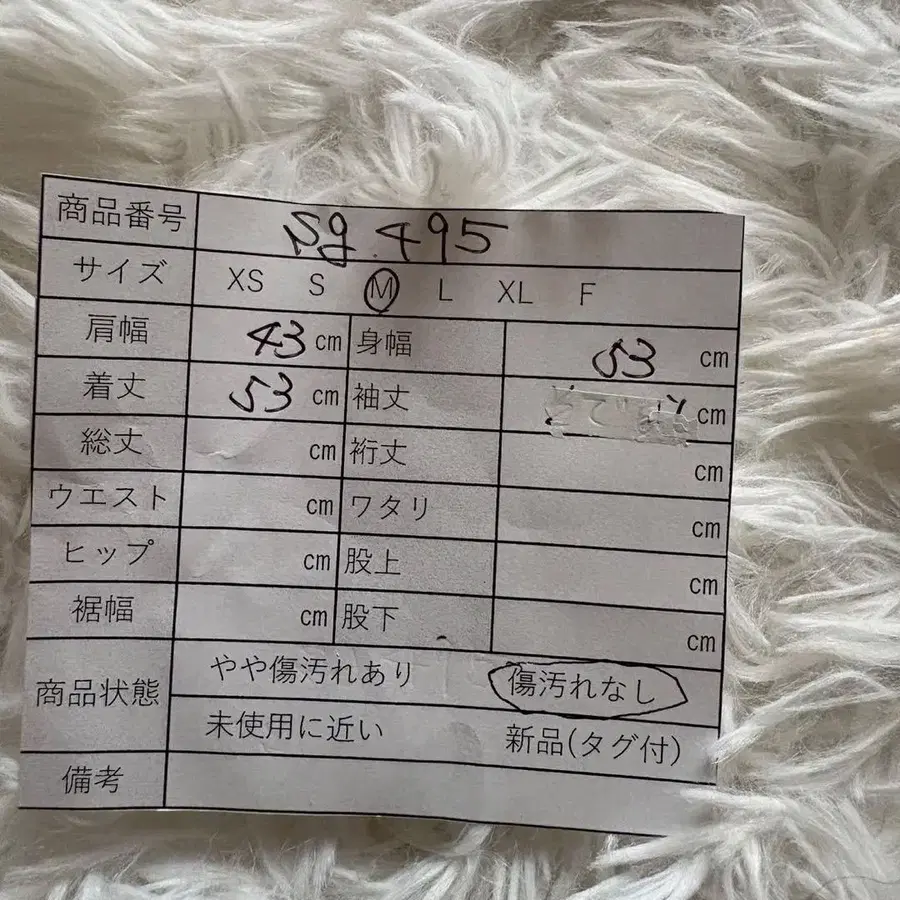 商品番号 sg.495
サイズ XS S M L XL F
肩幅 43 cm 身幅 53 cm
着丈 53 cm 袖丈 cm
総丈 cm 裄丈 cm
ウエスト cm ワタリ cm
ヒップ cm 股上 cm
裾幅 cm 股下 cm
商品状態 やや傷汚れあり 傷汚れなし
未使用に近い 新品(タグ付)
備考